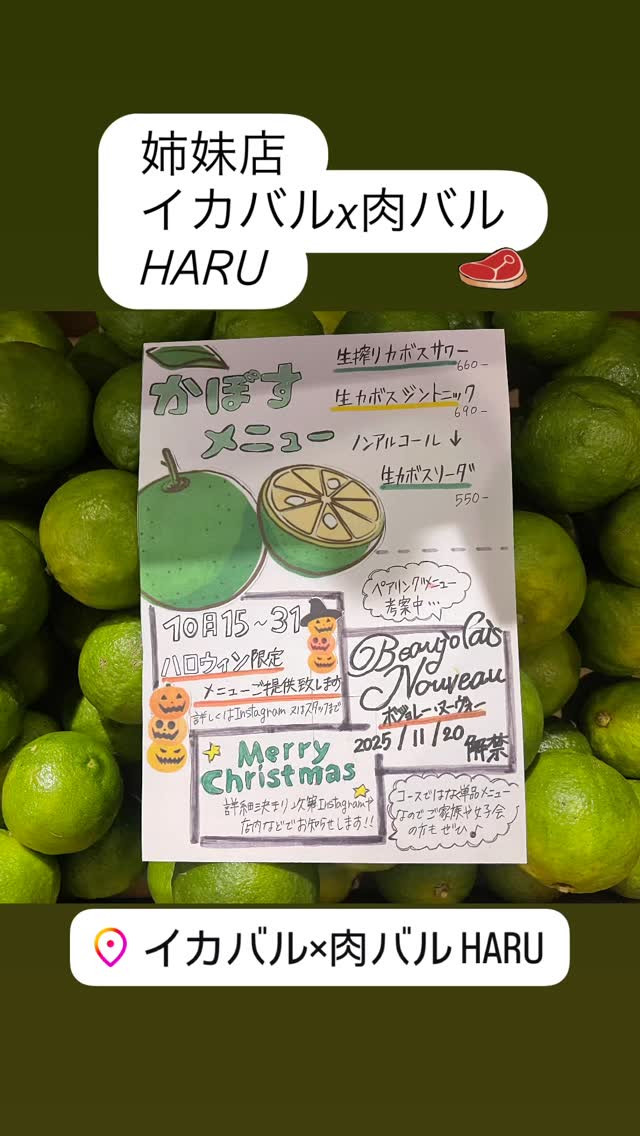 姉妹店
イカバルx肉バル
HARU
かぼす
メニュー
生搾りカボスサワー
660-
生カボスジントニック
690-
ノンアルコール ↓
生カボスソーダ
550-
ペアリングメニュー
考案中…
10月15~31
ハロウィン限定
メニューご提供致します
詳しくはInstagram又はスタッフまで
Beaujolais
Nouveau
ボジョレー・ヌーヴォー
2025/11/20 解禁
Merry
Christmas
詳細決まり次第Instagramや
店内などでお知らせします!!
コースではな単品メニュー
なのでご家族や女子会
の方もぜひ♪
イカバル×肉バル HARU